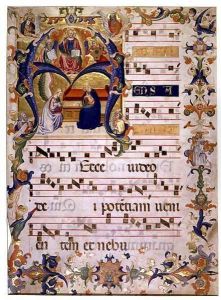 A
Ecce video
de i potentiam ueni
en tem et nebu